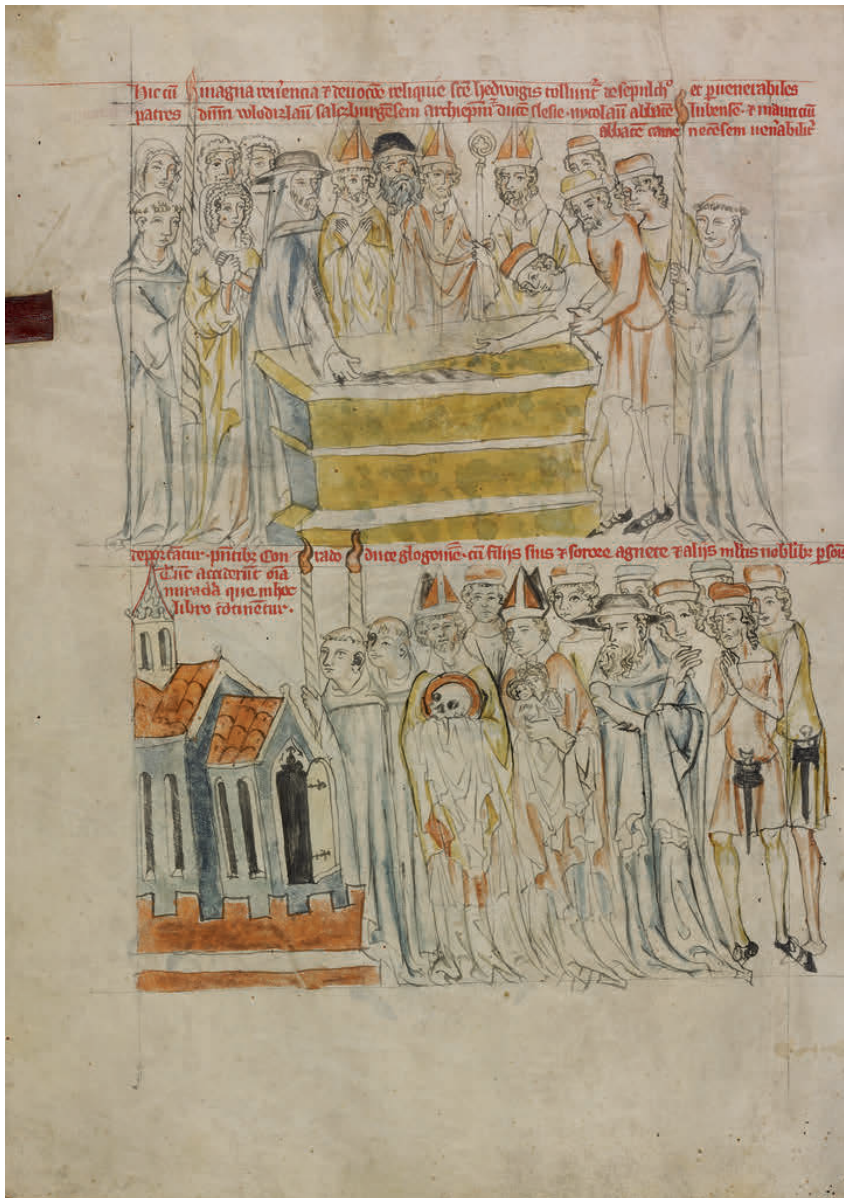 hic cū magna reuˀencia ⁊ deuocōe reliquie sce͞ hedwigis tollunt᷑ de sepulchº et ꝑ uenerabiles
patres dūm wlodizlaū salczburgēsem archiep̄m ⁊ ducē slesie · nycolaū abbatē lubensē · ⁊ mauriciū
abbatē came necēsem uenˀabilit᷑
reportatur · p̄ntibꝫ Con rado duce glogouiē · cū filijs suis ⁊ sorore agnete ⁊ alijs m̄ltis nobilibꝫ ꝑsoīs
Tūc acciderūt oīa
miracl̄a que in hoc
libro cōtinētur ·